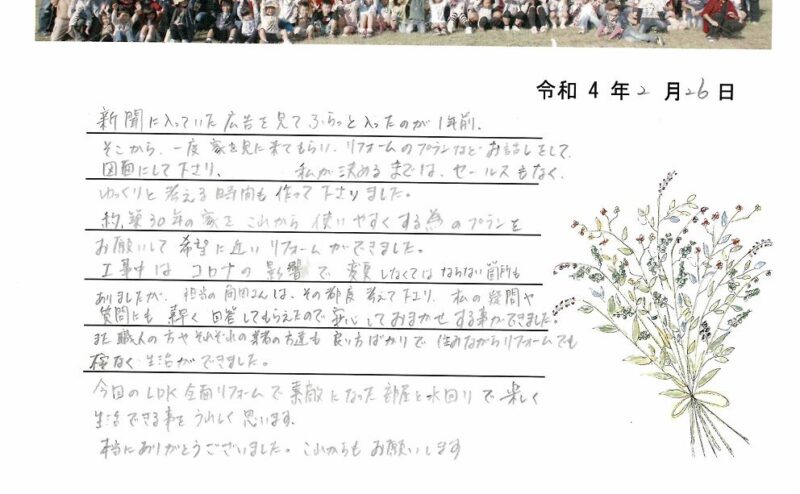 令和 4 年 2 月 26 日
新聞に入っていた広告を見てふらっと入ったのが1年前、
そこから、一度家を見に来てもらい、リフォームのプランなどお話しをして、
図面にして下さり、 私が決めるまでは、セールスもなく、
ゆっくりと考える時間も作って下さりました。
約、築30年の家をこれから使いやすくする為のプランを
お願いして希望に近いリフォームができました。
工事中はコロナの影響で変更しなくてはならない箇所も
ありましたが、担当の岡田さんは、その都度考えて下さり、私の疑問や
質問にも素早く回答してもらえたので安心しておまかせする事ができました。
また職人の方やそれぞれの業者の方達も良い方ばかりで住みながらリフォームでも
なく生活ができました。
今回のLDK全面リフォームで素敵になった部屋と水回りで楽しく
生活できる事をうれしく思います。
本当にありがとうございました。これからもお願いします